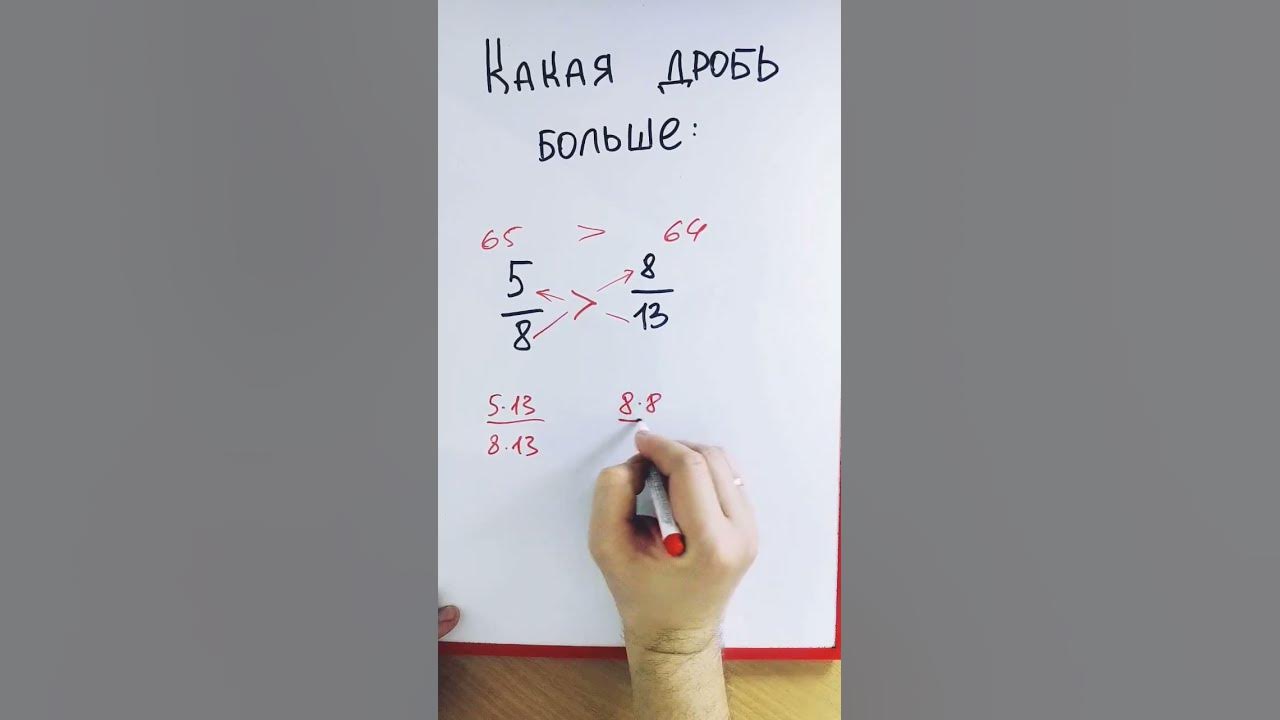 Какая дробь
больше:
65 > 64
5/8 > 8/13
5·13/8·13 8·8